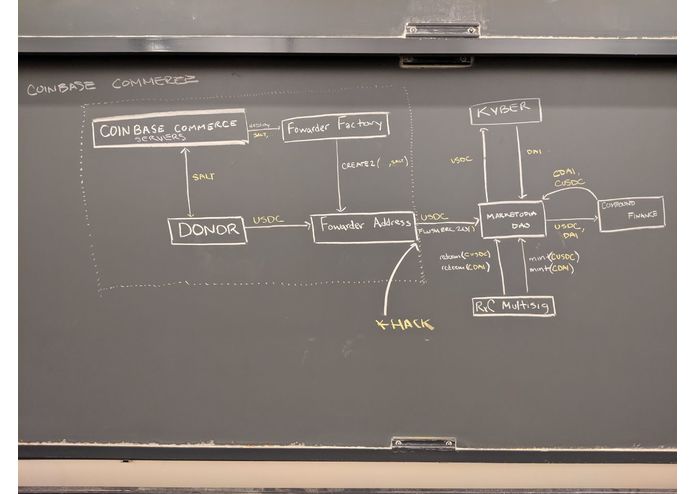 COINBASE COMMERCE
COINBASE COMMERCE
SERVERS
deploy
SALT,
Fowarder Factory
KYBER
SALT
CREATE2( , SALT)
USDC
DAI
CDAI,
CUSDC
DONOR
USDC
Fowarder Address
USDC
MARKETOPIA
DAO
USDC,
DAI
COMPOUND
FINANCE
redeem(CUSDC)
redeem(CDAI)
mint(CUSDC)
mint(CDAI)
RxC Multisig
HACK